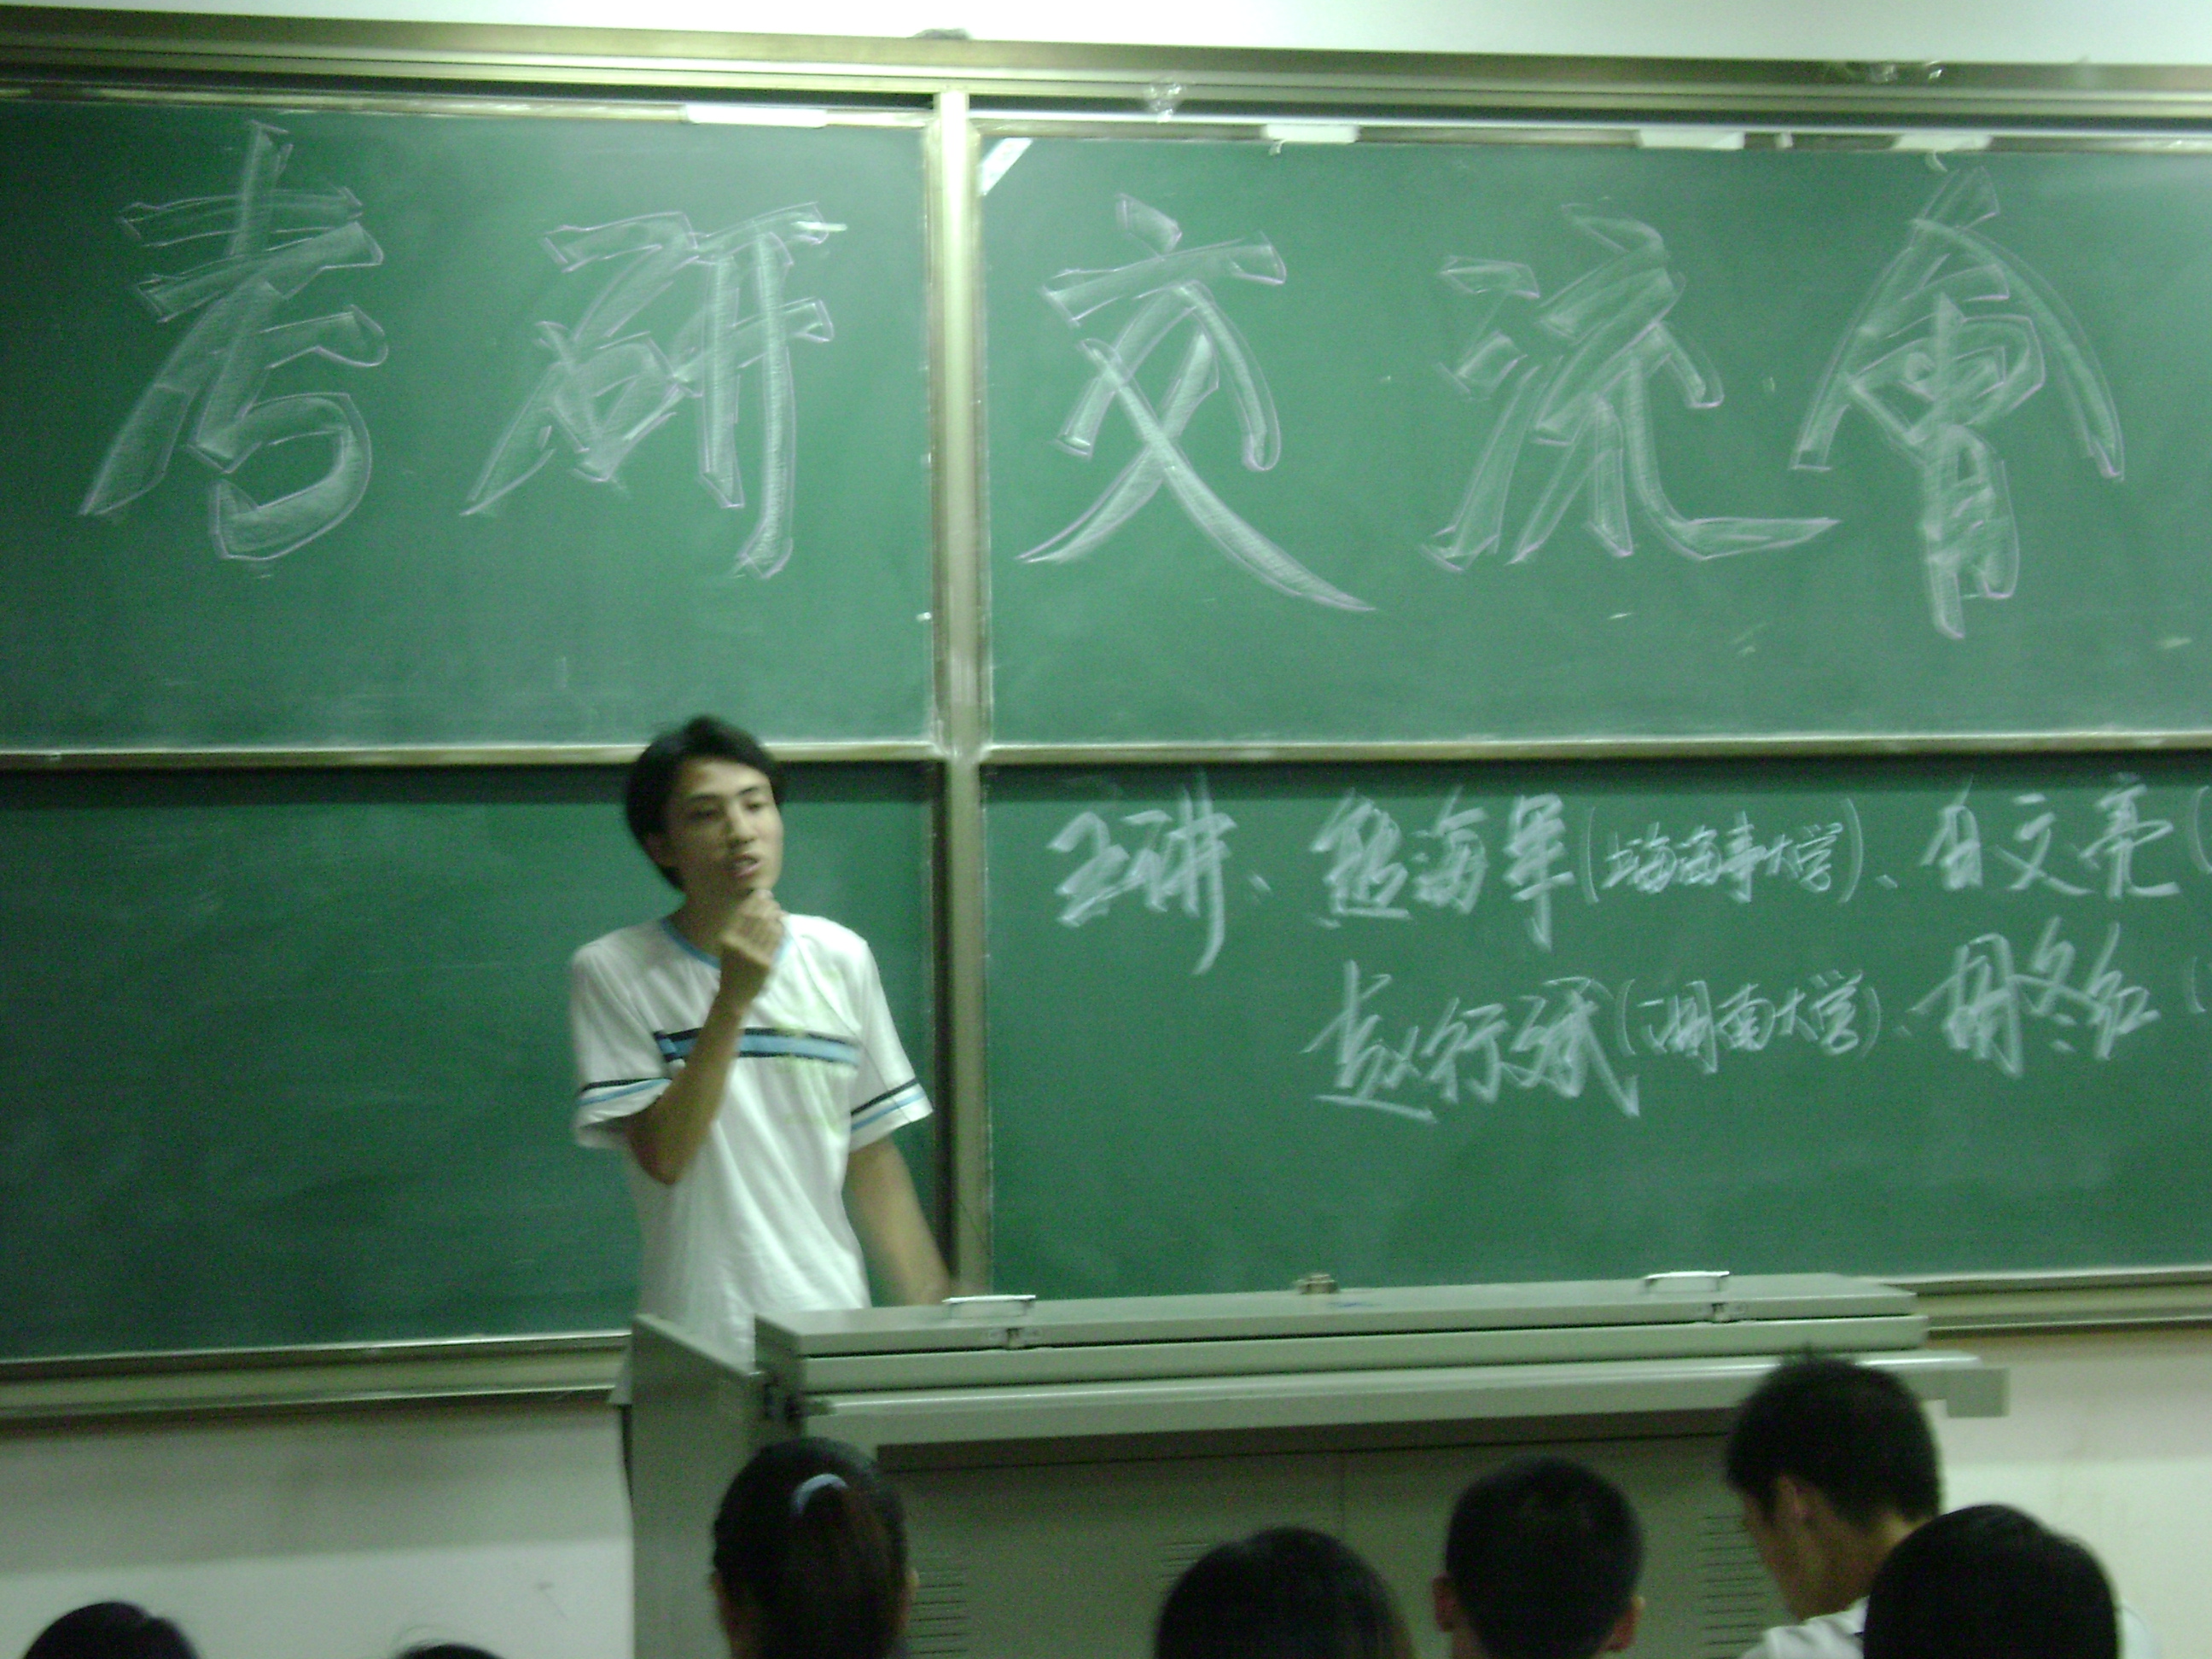 考研交流會
主讲、熊海军(上海海事大学)、白文亮(
赵行斌(湖南大学)、周冬红(